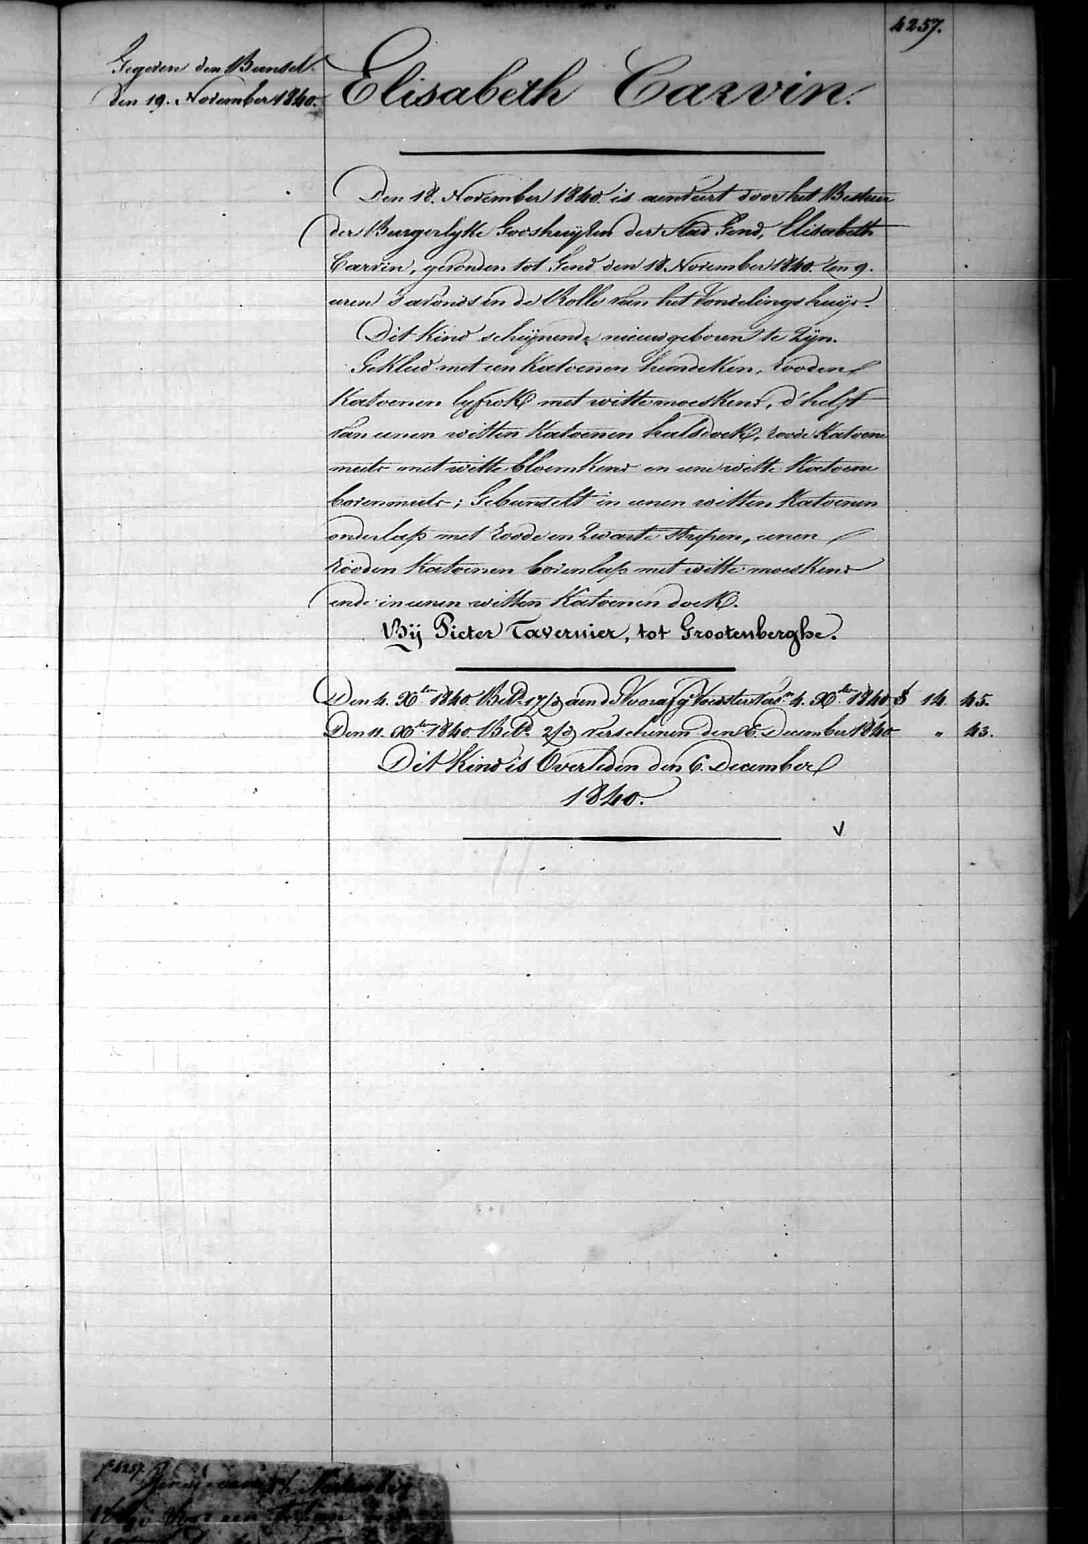 4257.
Gegeven den Bunsel
den 19. November 1840.
Elisabeth Carvin.
Den 18. November 1840. is aenveirt door het Bestuur
der Burgerlyke Godshuyzen der Stad Gend, Elisabeth
Carvin, gevonden tot Gend den 18. November 1840. ten 9.
uren 's avonds in de Rolle van het Vondelingshuijs.
Dit Kind schijnende nieuwgeboren te Zijn.
Gekleed met een Katoenen hemdeken, rooden
Katoenen lyfrok met witte moeskens, d'helft
van eenen witten Katoenen halsdoek, roode Katoene
muts met witte bloemkens en eene witte Katoene
bovenmuts; Gebunselt in eenen witten Katoenen
onderlap met roode en zwarte strepen, eenen
rooden Katoenen bovenlap met witte moeskens
ende in eenen witten Katoenen doek.
Bij Pieter Tavernier, tot Grootenberghe.
Den 4. Xber 1840. 17/3 aen de 4. Xber 1840 14. 45.
Den 11. Xber 1840. 2/3 verschenen den 6. December 1840 " 43.
Dit Kind is Overleden den 6. December
1840.
V
fo 4257.